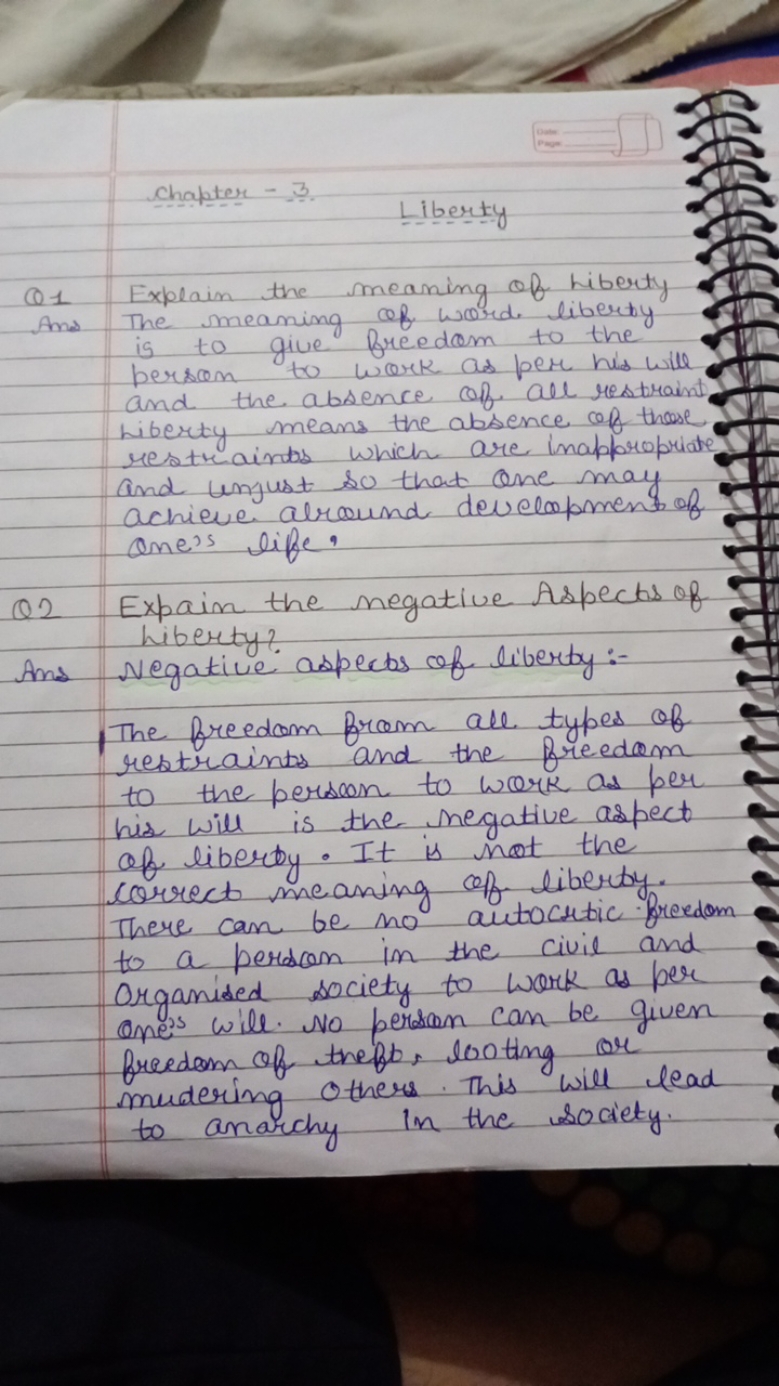 Date:
Page:
Chapter - 3
Liberty
Q1 Explain the meaning of Liberty
Ans The meaning of word liberty
is to give freedom to the
person to work as per his will
and the absence of all restraint
Liberty means the absence of those
restraints which are inappropriate
and unjust so that one may
achieve alround development of
one's life.
Q2 Expain the negative Aspects of
Liberty?
Ans Negative aspects of liberty :-
The freedom from all types of
restraints and the freedom
to the person to work as per
his will is the negative aspect
of liberty. It is not the
correct meaning of liberty.
There can be no autocrtic freedom
to a person in the civil and
Organised society to work as per
one's will. No person can be given
freedom of theft, looting or
mudering others. This will lead
to anarchy in the society.